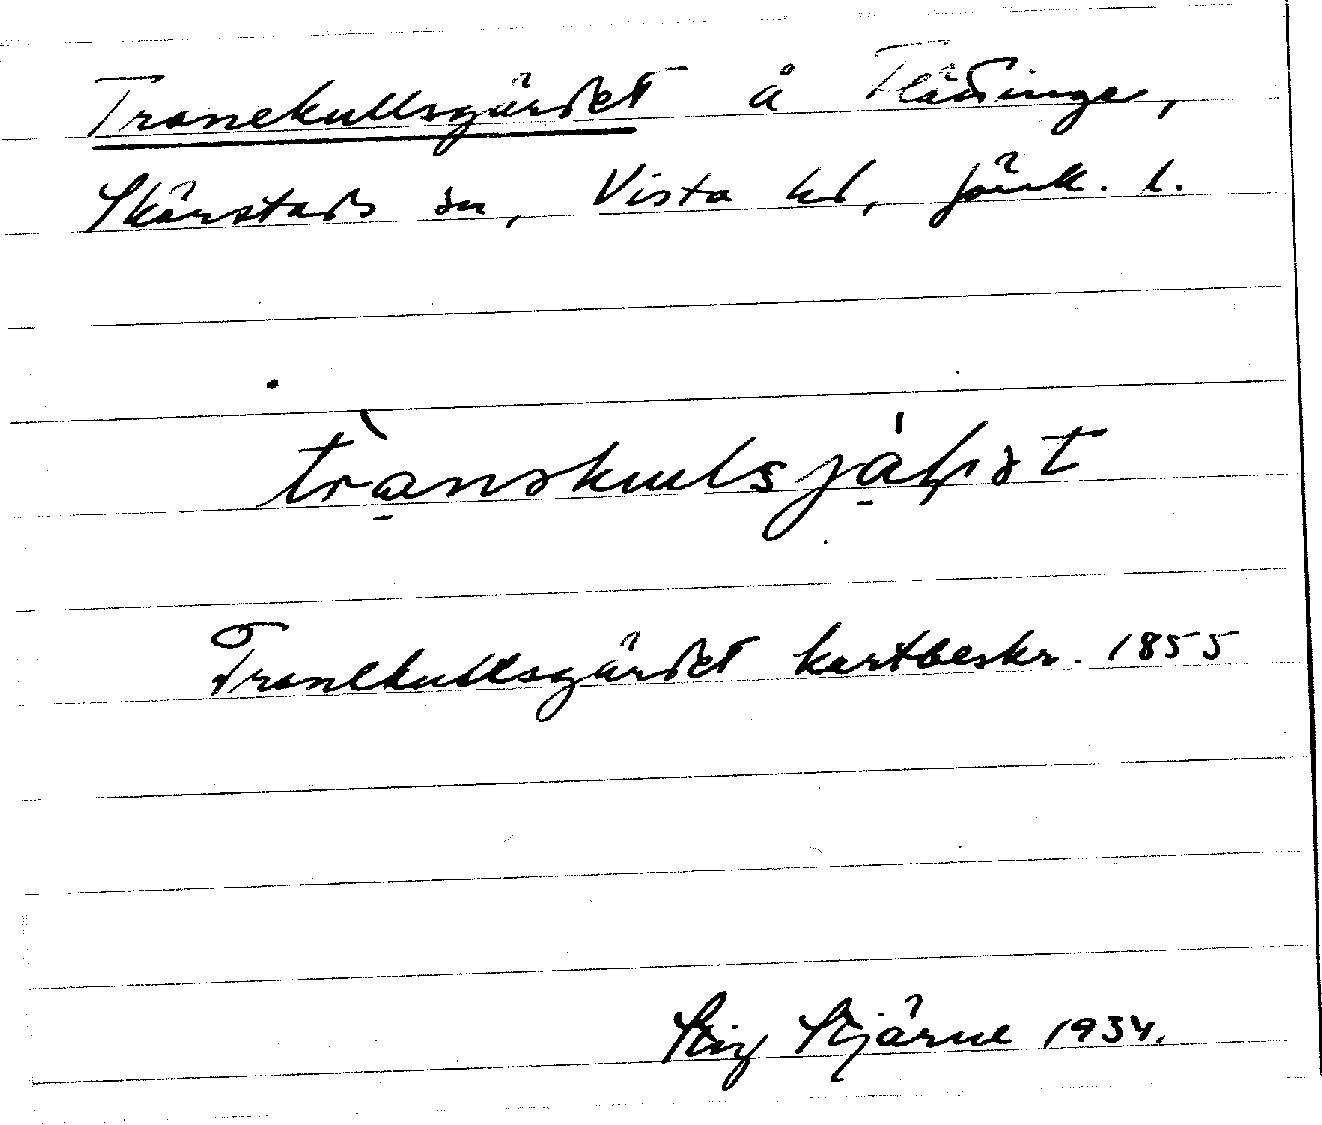 Tranekullsgärdet å Flättinge,
Skärstads sn, Vista hd, Jönk. l.
Tranekullsgärdet kartbeskr. 1855
Stig Stjärne 1934.